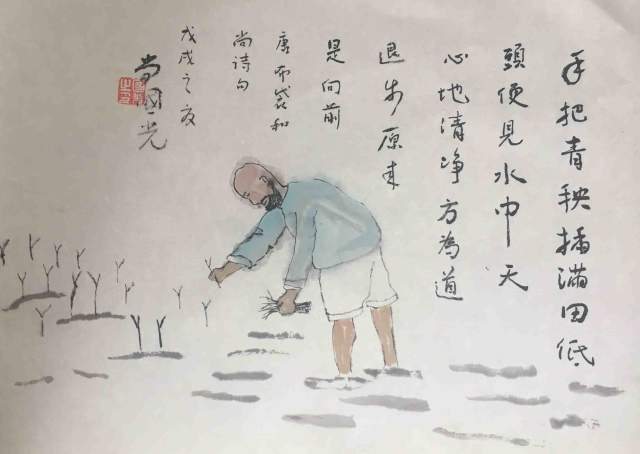 手把青秧插满田低
頭便見水中天
心地清净方為道
退步原来
是向前
唐布袋和
尚诗句
戊戌之夜